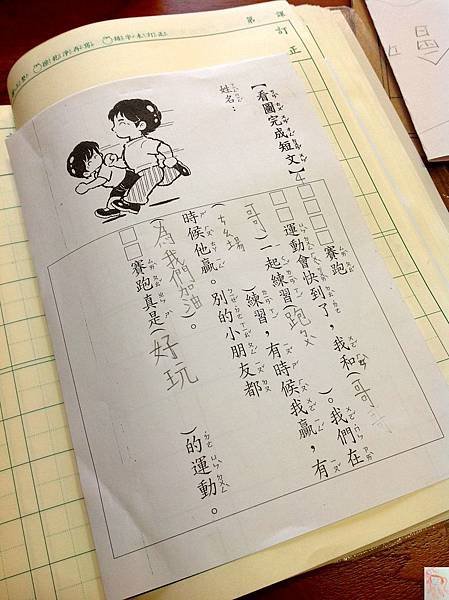 第 課
訂正
【看圖完成短文】4
姓名：
賽跑
運動會快到了，我和(哥、哥
哥、)一起練習(跑步)。我們在
(ㄘㄠ場)練習，有時候我贏，有
時候他贏。別的小朋友都
(為我們加油)。
賽跑真是(好玩)的運動。